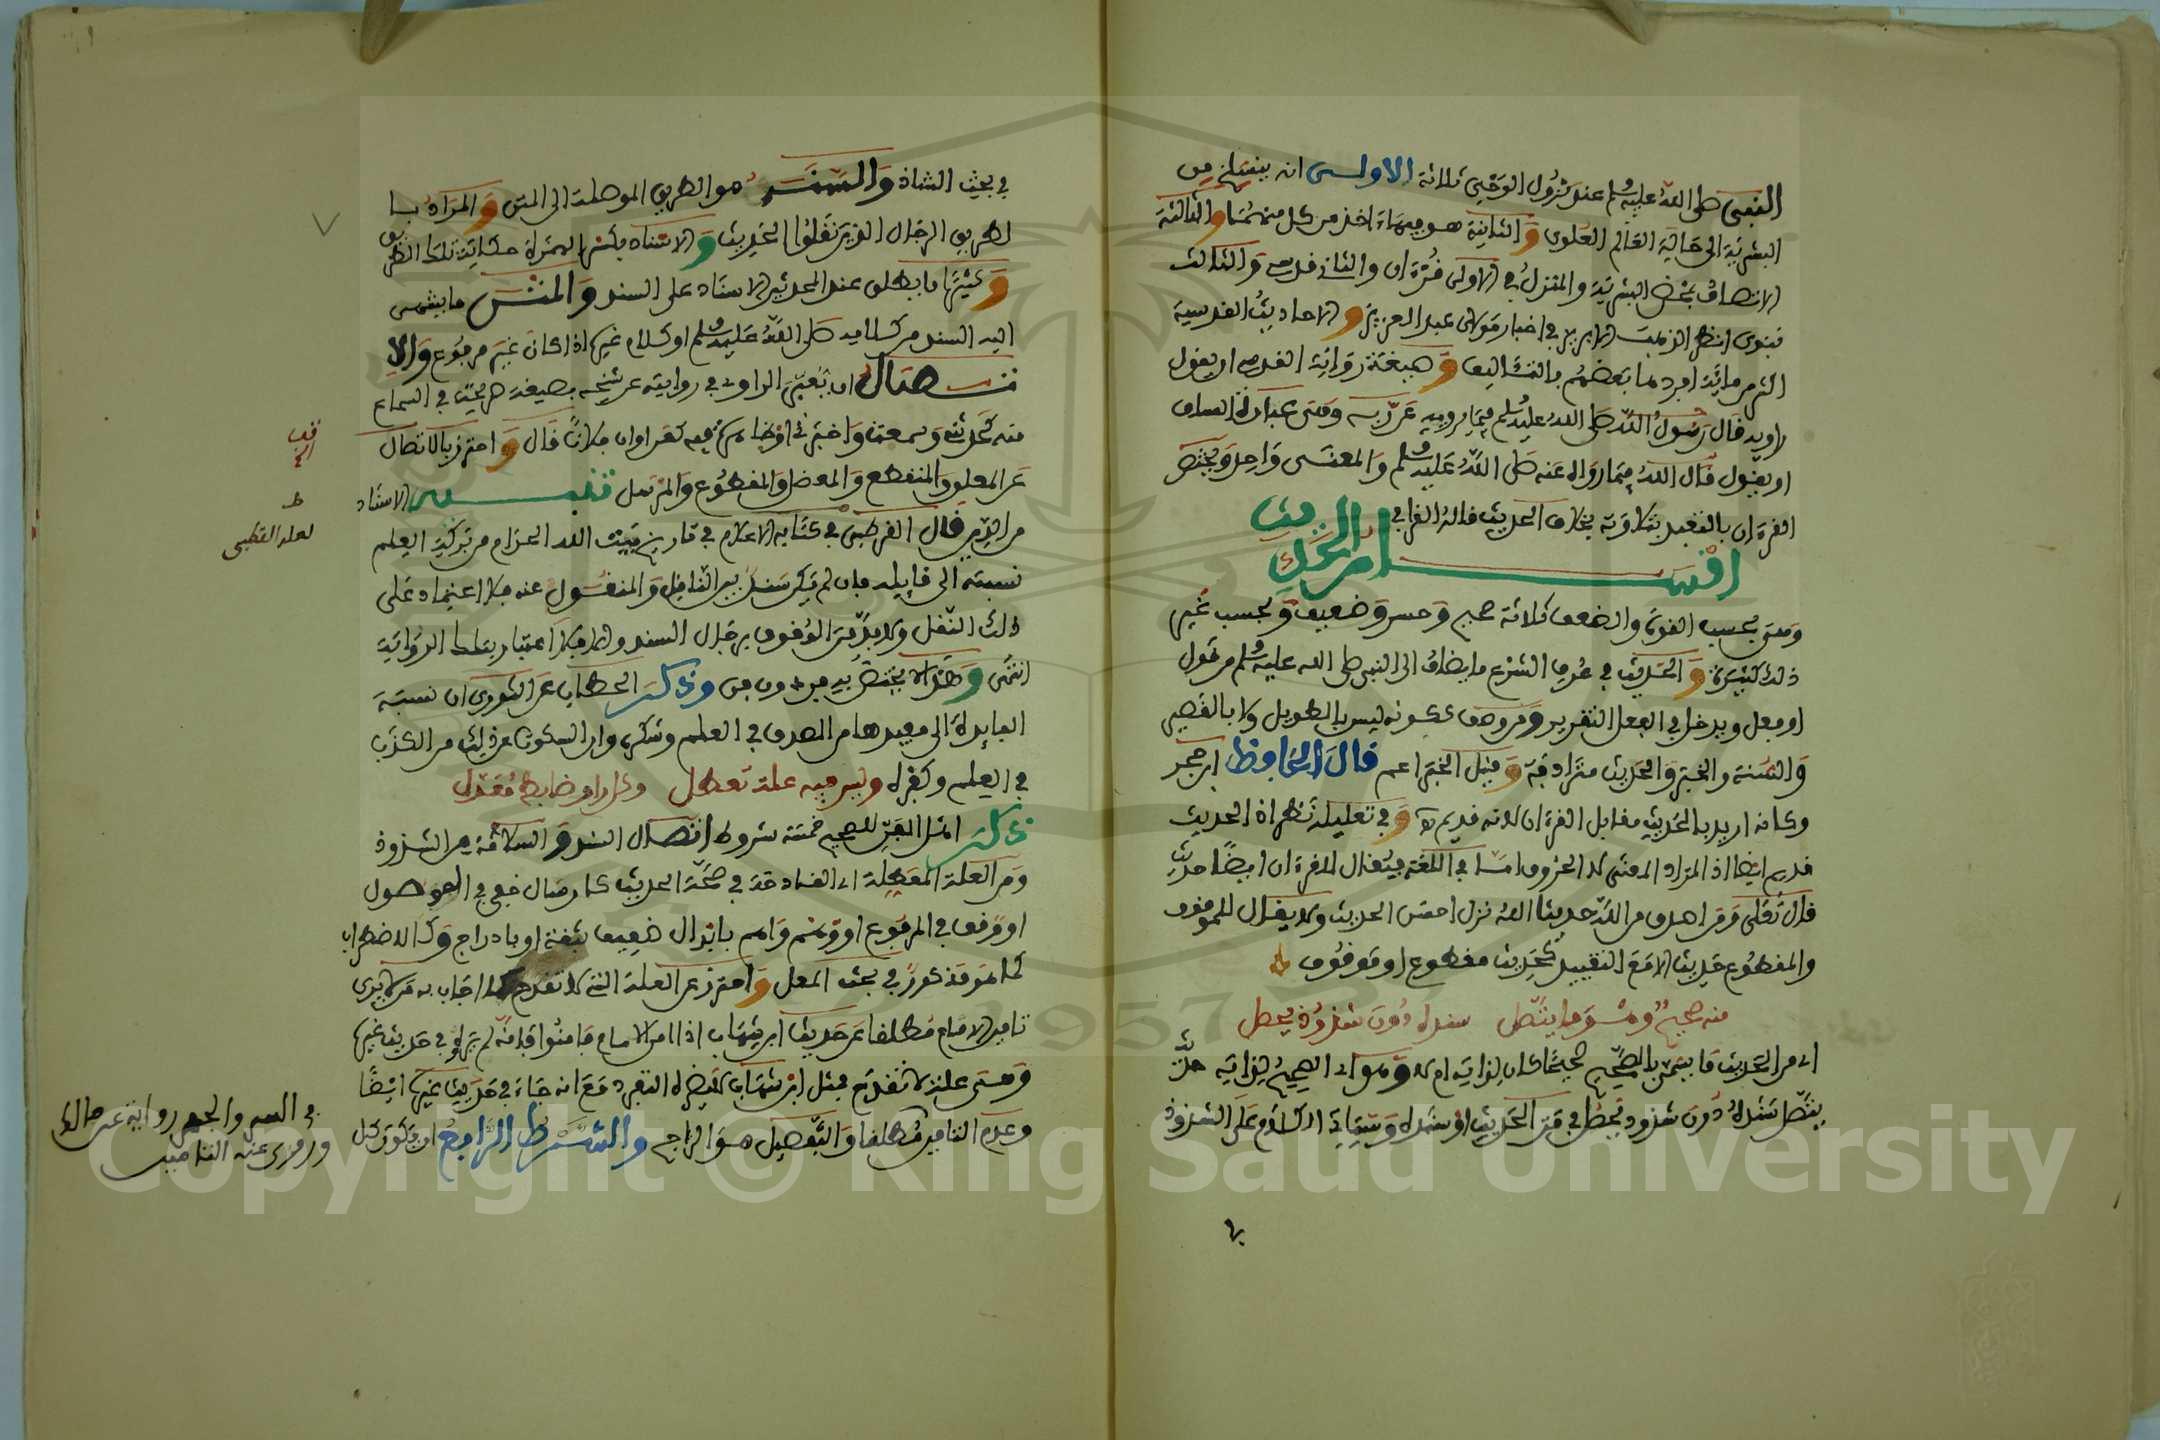 النبي صلى الله عليه وسلم عند نزول الوحي ثلاثة الاولى ان ينسلخ من
البشرية الى حالة العالم العلوي والثانية هو جاء اخذ من كل منهما والثالثة
الاتصاف بمحض البشرية والمنزل في الاولى قرءان والثان قدسي والثالث
نبوى انظر الذهب الابريز في اخبار مولاي عبد العزيز والاحاديث القدسية
اكثر من مائة افردها بعضهم بالتئاليف وصيغة رواية القدسي ان يقول
راويه قال رسول الله صلى الله عليه وسلم فيما يرويه عن ربه وهي عبارة السلف
او يقول قال الله فيما رواه عنه صلى الله عليه وسلم والمعنى واحد ويختص
القرءان بالتعبد بتلاوته بخلاف الحديث قاله القرافي
اقسام الحديث
وهي بحسب القوة والضعف ثلاثة صحيح وحسن وضعيف وبحسب غيرها
ذلك كثيرة والحديث في عرف الشرع ما يضاف الى النبي صلى الله عليه وسلم من قول
او فعل ويدخل في الفعل التقرير ووصف ككونه ليس بالطويل ولا بالقصير
والسنة والخبر والحديث مترادفة وقيل الخبر اعم قال الحافظ ابن حجر
وكانه اريد بالحديث مقابل القرءان لانه قديم وفي تعليله نظر اذ الحديث
قديم ايضا اذ المراد المعنى لا الحروف اما في اللغة فيقال للقرءان ايضا حديث
قال تعلى ومن اصدق من الله حديثا الله نزل احسن الحديث ولا يقال للموقوف
والمقطوع حديث الا مع التقييد كحديث مقطوع او موقوف
منه صحيح وهو ما يتصل سنده دون شذوذ يحصل
اي من الحديث ما يسمى بالصحيح
يتصل سنده دون شذوذ يحصل في متن الحديث او سنده وسياتي الكلام على الشذوذ
في بحث الشاذ والسند هو الطريق الموصلة الى المتن والمراد بـ
لطريق الرجال الذين نقلوا الحديث والاسناد بكسر الهمزة حكاية تلك الطريق
وكثيرا ما يطلق عند المحدثين الاسناد على السند والمتن ما ينتهي
اليه السند من كلامه صلى الله عليه وسلم او كلام غيره اذا كان غير مرفوع والا
تصال ان يعبر الراوي في روايته عن شيخه بصيغة صريحة في السماع
منه كحدثني وسمعت واخبرني او ظاهرة فيه كعن او ان فلانا قال واحترز بالاتصال
عن المعلق والمنقطع والمعضل والمقطوع والمرسل تنبيه الاسناد
من الدين قال القرطبي في كتابه الاعلام في تاريخ بيت الله الحرام من بركة العلم
نسبته الى قايله فان لم يكن سند بين الناقل والمنقول عنه فلا اعتماد على
ذلك النقل ولا بد من الوثوق برجال السند والا فلا اعتبار بتلك الرواية
انتهى وهذا لا يختص به فن دون فن وذكر الحطاب عن النووي ان نسبة
الفايدة الى مفيدها من الصدق في العلم وشكره وان السكوت عن ذلك من الكذب
في العلم وكفره وليس فيه علة تعطل وكل راو ضابط معدل
ذكر للصحيح خمسة شروط اتصال السند والسلامة من الشذوذ
ومن العلة المعطلة اي القادحة في صحة الحديث كارسال خفي في الموصول
او وقف في المرفوع او وهم واهم بابدال ضعيف بثقة او بادراج وكالاضطراب
كما هو مذكور في بحث المعل واحترز عن العلة التي لا تقدح
تامين الامام مطلقا عن حديث ابن شهاب اذا امن الامام فامنوا فانه لم يره في حديث غيره
وهي علة لا تقدح فمثل ابن شهاب لا يضره التفرد مع انه جاء في حديث غيره ايضا
وعدم التامين مطلقا والتفصيل هو الراجح والشرط الرابع ان يكون كل
قف
لعله القطبي
في السر والجهر رواية عن مالك